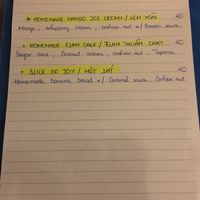 • HOMEMADE MANGO ICE CREAM / KEM XOÀI 40
Mango, whipping cream, cashew nut w/ sauce
• HOMEMADE FLAN CAKE / FLAN THUẦN CHAY 40
Sugar cane, Coconut cream, cashew nut, Tapioca
• SLICE OF JOY / MỘT LÁT 40
Homemade banana bread w/ Caramel sauce, Cashew nut